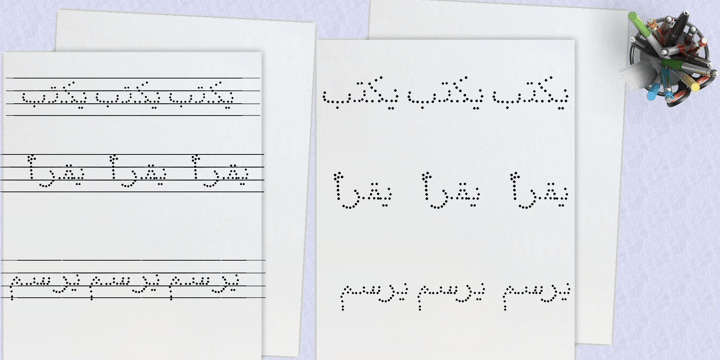 يكتب يكتب يكتب
يقرأ يقرأ يقرأ
يرسم يرسم يرسم
يكتب يكتب يكتب
يقرأ يقرأ يقرأ
يرسم يرسم يرسم